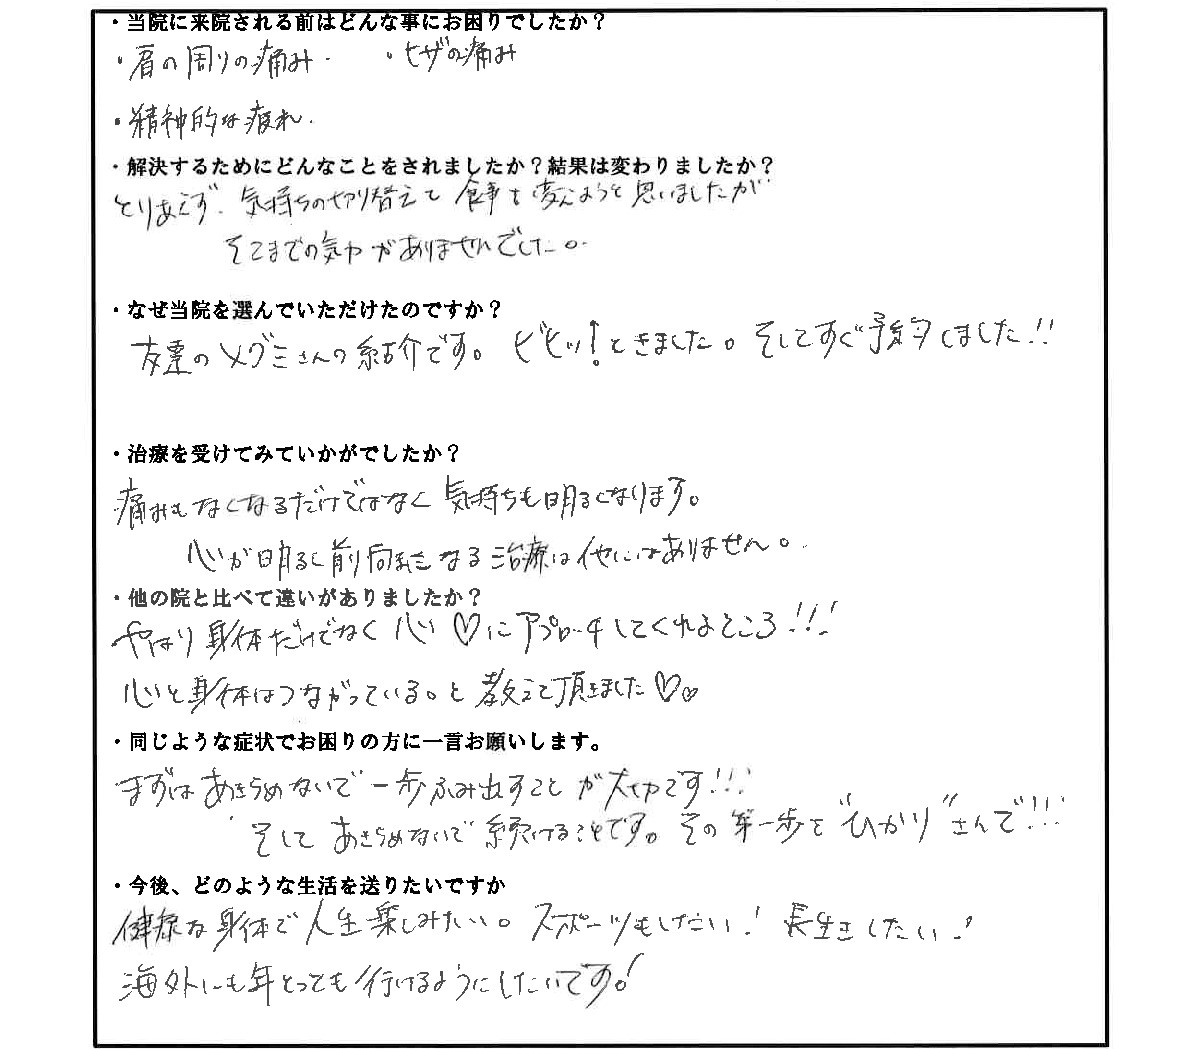 ・当院に来院される前はどんな事にお困りでしたか？
・肩の周りの痛み. ・ヒザの痛み
・精神的な疲れ.
・解決するためにどんなことをされましたか？結果は変わりましたか？
とりあえず、気持ちの切り替えて食事を変えようと思いましたが
そこまでの気力がありませんでした。
・なぜ当院を選んでいただけたのですか？
友達のメグミさんの紹介です。ビビッ！ときました。そしてすぐ予約しました!!
・治療を受けてみていかがでしたか？
痛みもなくなるだけではなく気持ちも明るくなります。
心が明るく前向きになる治療は他にはありません。
・他の院と比べて違いがありましたか？
やはり身体だけでなく心♡にアプローチしてくれるところ!!!
心と身体はつながっている。と教えて頂きました♡♡
・同じような症状でお困りの方に一言お願いします。
まずはあきらめないで一歩ふみ出すことが大切です!!!
そしてあきらめないで続けることです。その第一歩を"ひかり"さんで!!!
・今後、どのような生活を送りたいですか
健康な身体で人生楽しみたい。スポーツもしたい！長生きしたい！
海外にも年とっても行けるようにしたいです！